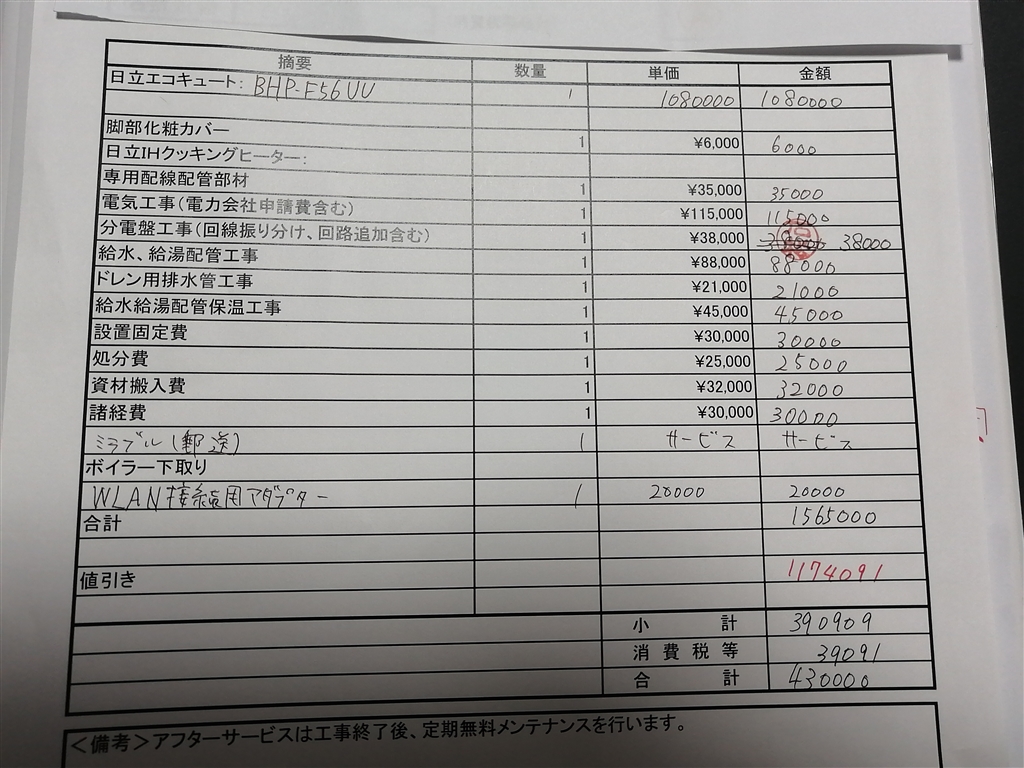 摘要 数量 単価 金額
日立エコキュート: BHP-F56UU 1 1080000 1080000
脚部化粧カバー 1 ¥6,000 6000
日立IHクッキングヒーター:
専用配線配管部材 1 ¥35,000 35000
電気工事(電力会社申請費含む) 1 ¥115,000 115000
分電盤工事(回線振り分け、回路追加含む) 1 ¥38,000 38000 38000
給水、給湯配管工事 1 ¥88,000 88000
ドレン用排水管工事 1 ¥21,000 21000
給水給湯配管保温工事 1 ¥45,000 45000
設置固定費 1 ¥30,000 30000
処分費 1 ¥25,000 25000
資材搬入費 1 ¥32,000 32000
諸経費 1 ¥30,000 30000
ミラブル(郵送) 1 サービス サービス
ボイラー下取り
WLAN接続用アダプター 1 20000 20000
合計 1565000
値引き 1174091
小計 390909
消費税等 39091
合計 430000
<備考>アフターサービスは工事終了後、定期無料メンテナンスを行います。